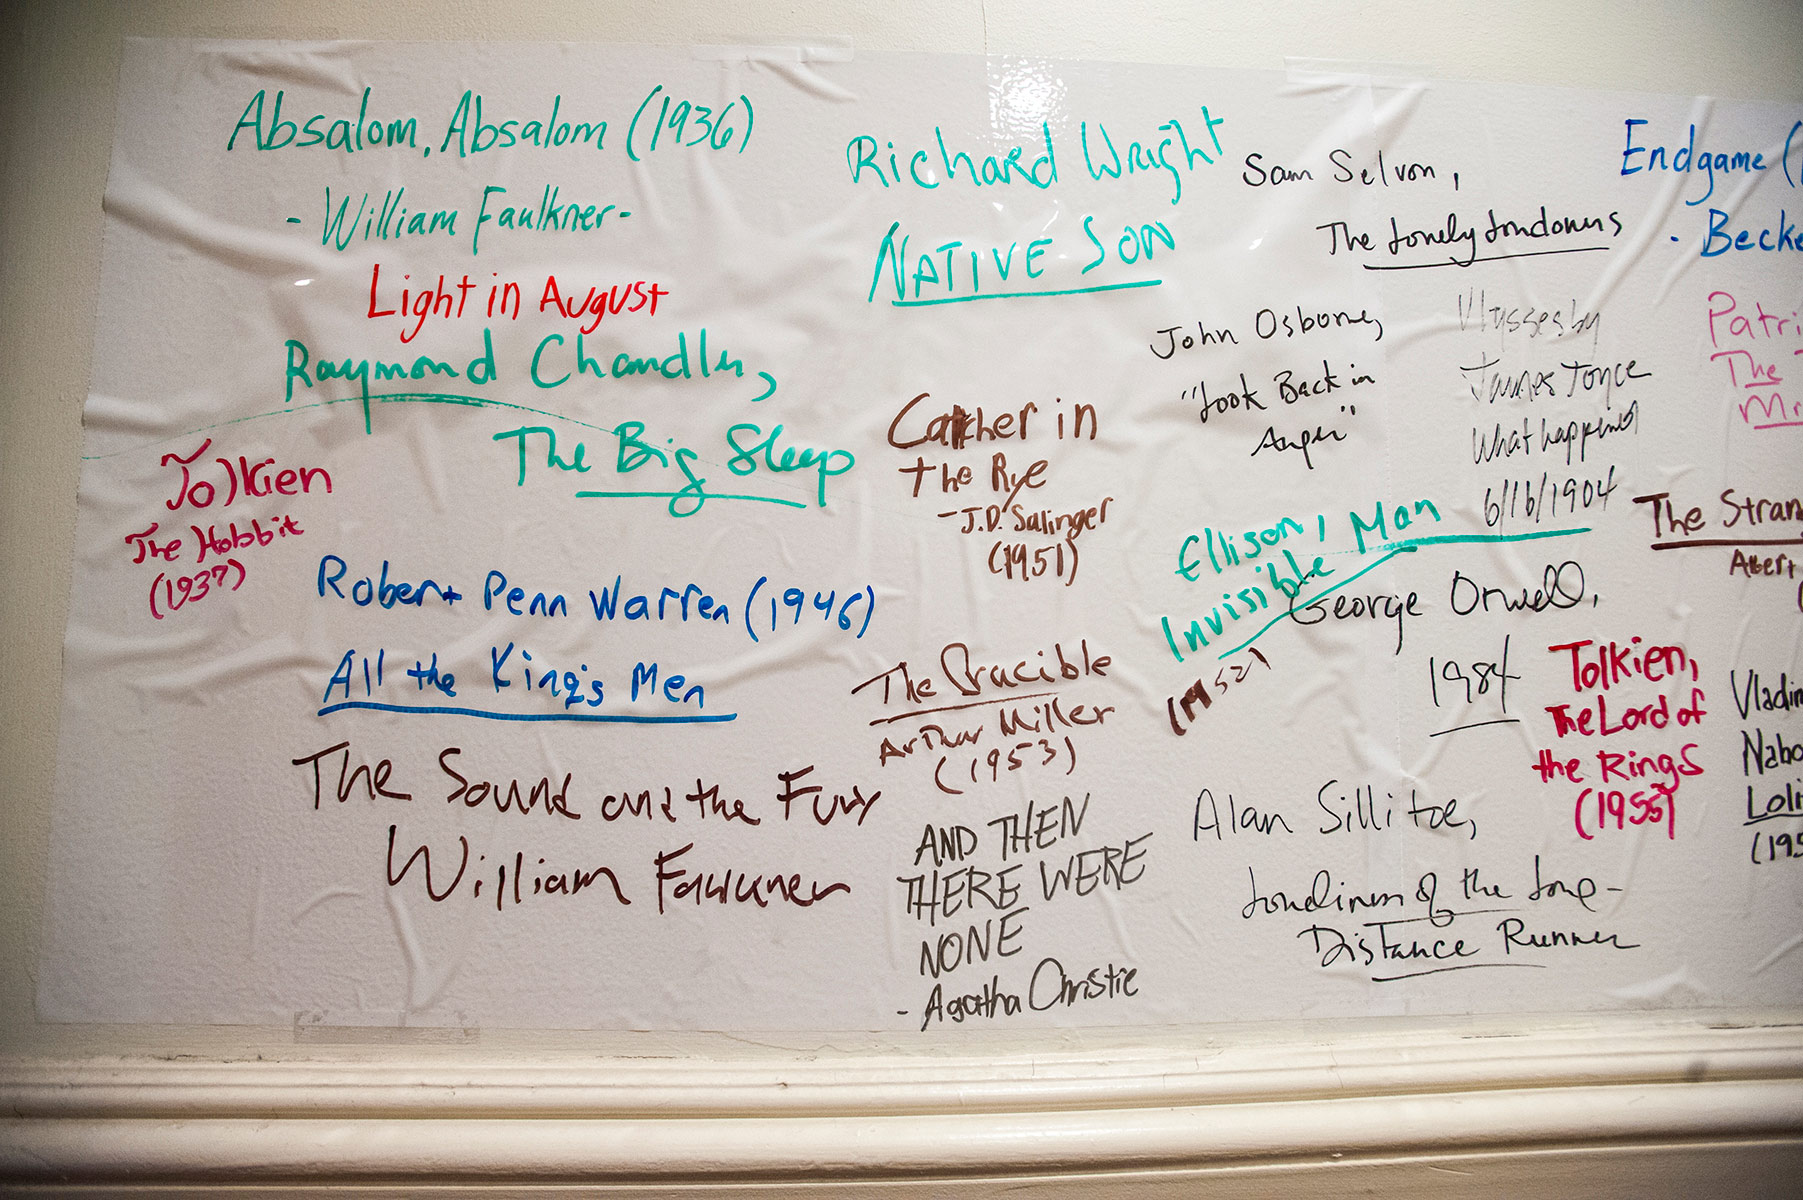 Absalom, Absalom (1936)
- William Faulkner -
Light in August
Raymond Chandler,
The Big Sleep
Tolkien
The Hobbit
(1937)
Robert Penn Warren (1946)
All the King's Men
The Sound and the Fury
William Faulkner
Richard Wright
NATIVE SON
Catcher in
the Rye
- J.D. Salinger
(1951)
The Crucible
Arthur Miller
(1953)
AND THEN
THERE WERE
NONE
- Agatha Christie
Sam Selvon,
The Lonely Londoners
John Osborne,
"Look Back in
Anger"
Ulysses by
James Joyce
What happened
6/16/1904
Ellison, Invisible Man
(1952)
George Orwell,
1984
Tolkien,
The Lord of
the Rings
(1955)
Alan Sillitoe,
Loneliness of the Long-
Distance Runner
Endgame (1
- Becke
Patri
The
Mr
The Stran
Albert
Vladim
Nabo
Loli
(195